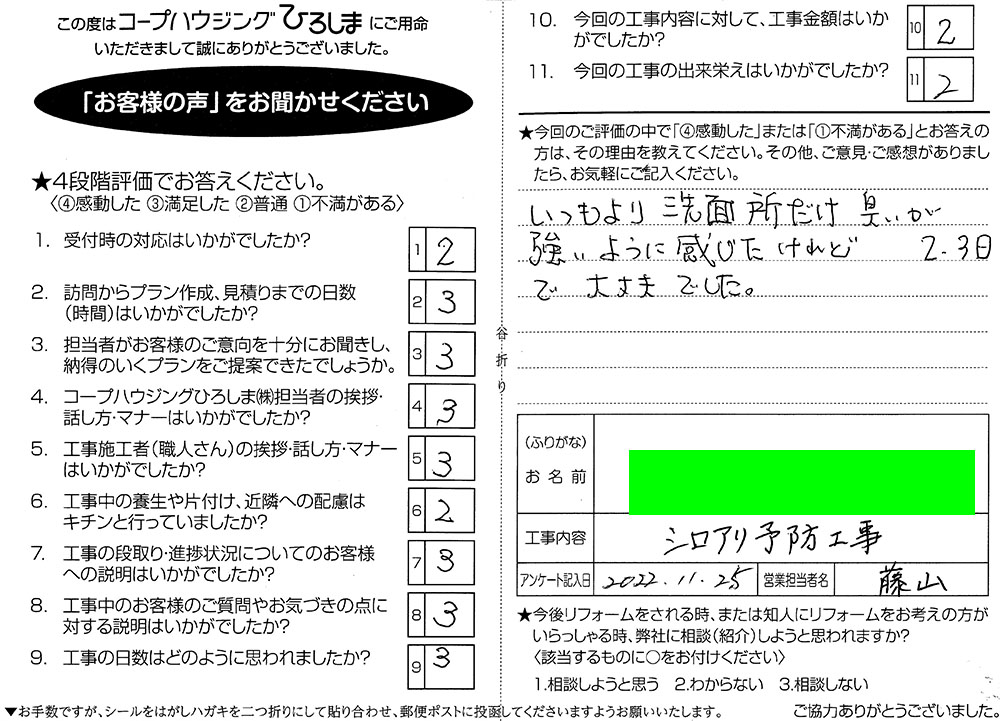 この度はコープハウジングひろしまにご用命
いただきまして誠にありがとうございました。
「お客様の声」をお聞かせください
★4段階評価でお答えください。
〈④感動した ③満足した ②普通 ①不満がある〉
1. 受付時の対応はいかがでしたか?
1 2
2. 訪問からプラン作成、見積りまでの日数
(時間)はいかがでしたか?
2 3
3. 担当者がお客様のご意向を十分にお聞きし、
納得のいくプランをご提案できたでしょうか。
3 3
4. コープハウジングひろしま㈱担当者の挨拶・
話し方・マナーはいかがでしたか?
4 3
5. 工事施工者(職人さん)の挨拶・話し方・マナー
はいかがでしたか?
5 3
6. 工事中の養生や片付け、近隣への配慮は
キチンと行っていましたか?
6 2
7. 工事の段取り・進捗状況についてのお客様
への説明はいかがでしたか?
7 3
8. 工事中のお客様のご質問やお気づきの点に
対する説明はいかがでしたか?
8 3
9. 工事の日数はどのように思われましたか?
9 3
▼お手数ですが、シールをはがしハガキを二つ折りにして貼り合わせ、郵便ポストに投函してくださいますようお願いいたします。
谷折り
10. 今回の工事内容に対して、工事金額はいか
がでしたか?
10 2
11. 今回の工事の出来栄えはいかがでしたか?
11 2
★今回のご評価の中で「④感動した」または「①不満がある」とお答えの
方は、その理由を教えてください。その他、ご意見・ご感想がありまし
たら、お気軽にご記入ください。
いつもより 洗面所だけ 臭いが
強いように感じたけれど 2.3日
で 大丈夫でした。
(ふりがな)
お名前
工事内容 シロアリ予防工事
アンケート記入日 2022.11.25 営業担当者名 藤山
★今後リフォームをされる時、または知人にリフォームをお考えの方が
いらっしゃる時、弊社に相談(紹介)しようと思われますか?
〈該当するものに○をお付けください〉
1.相談しようと思う 2.わからない 3.相談しない
ご協力ありがとうございました。